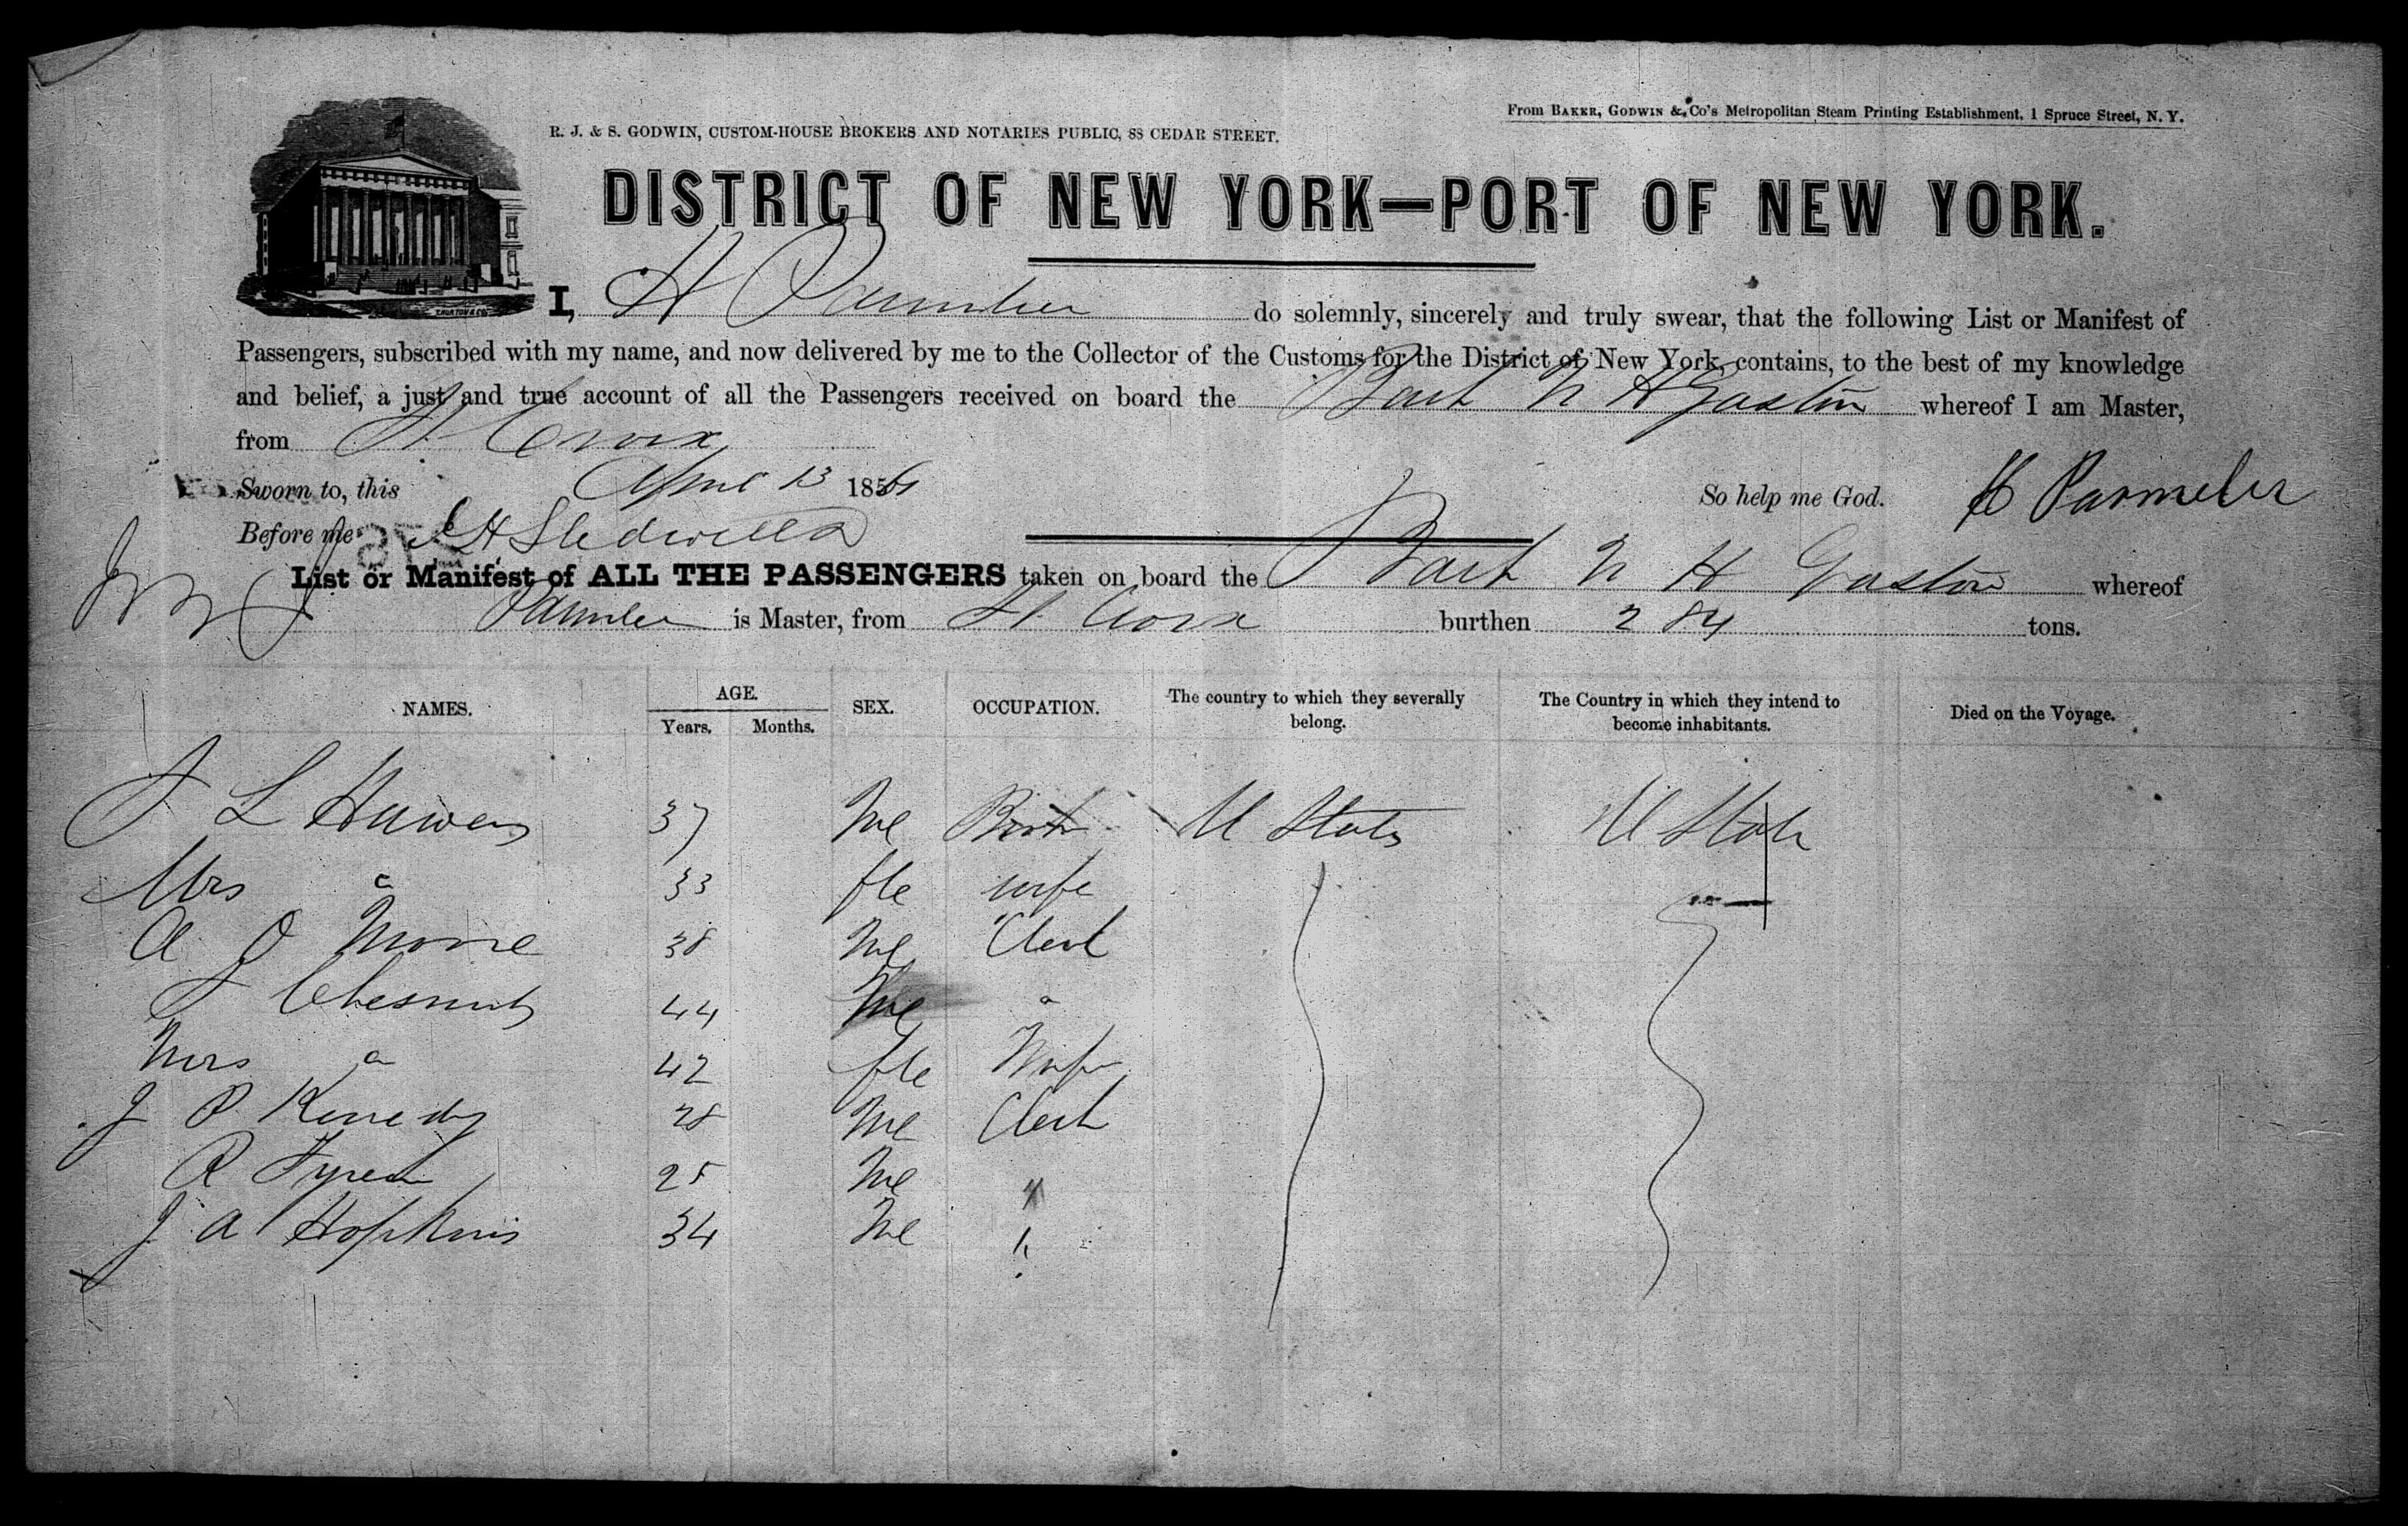 From BAKER, GODWIN & Co's Metropolitan Steam Printing Establishment, 1 Spruce Street, N. Y.
R. J. & S. GODWIN, CUSTOM-HOUSE BROKERS AND NOTARIES PUBLIC, 88 CEDAR STREET.
DISTRICT OF NEW YORK—PORT OF NEW YORK.
I, H Parmelee do solemnly, sincerely and truly swear, that the following List or Manifest of
Passengers, subscribed with my name, and now delivered by me to the Collector of the Customs for the District of New York, contains, to the best of my knowledge
and belief, a just and true account of all the Passengers received on board the Bark N H Gaston whereof I am Master,
from St Croix
Sworn to, this April 13 1856 So help me God. H Parmelee
Before me
List or Manifest of ALL THE PASSENGERS taken on board the Bark N H Gaston whereof
Parmelee is Master, from St Croix burthen 284 tons.
NAMES. AGE. Years. Months. SEX. OCCUPATION. The country to which they severally belong. The Country in which they intend to become inhabitants. Died on the Voyage.
L Hawes 37 Me U States U State
Mrs " 33 fle wife
A O Morre 38 Me Clerk
Chesnut 44 Me "
Mrs " 42 fle Wife
J P Kennedy 28 Me Clerk
R 25 Me "
J A Hopkins 34 Me "